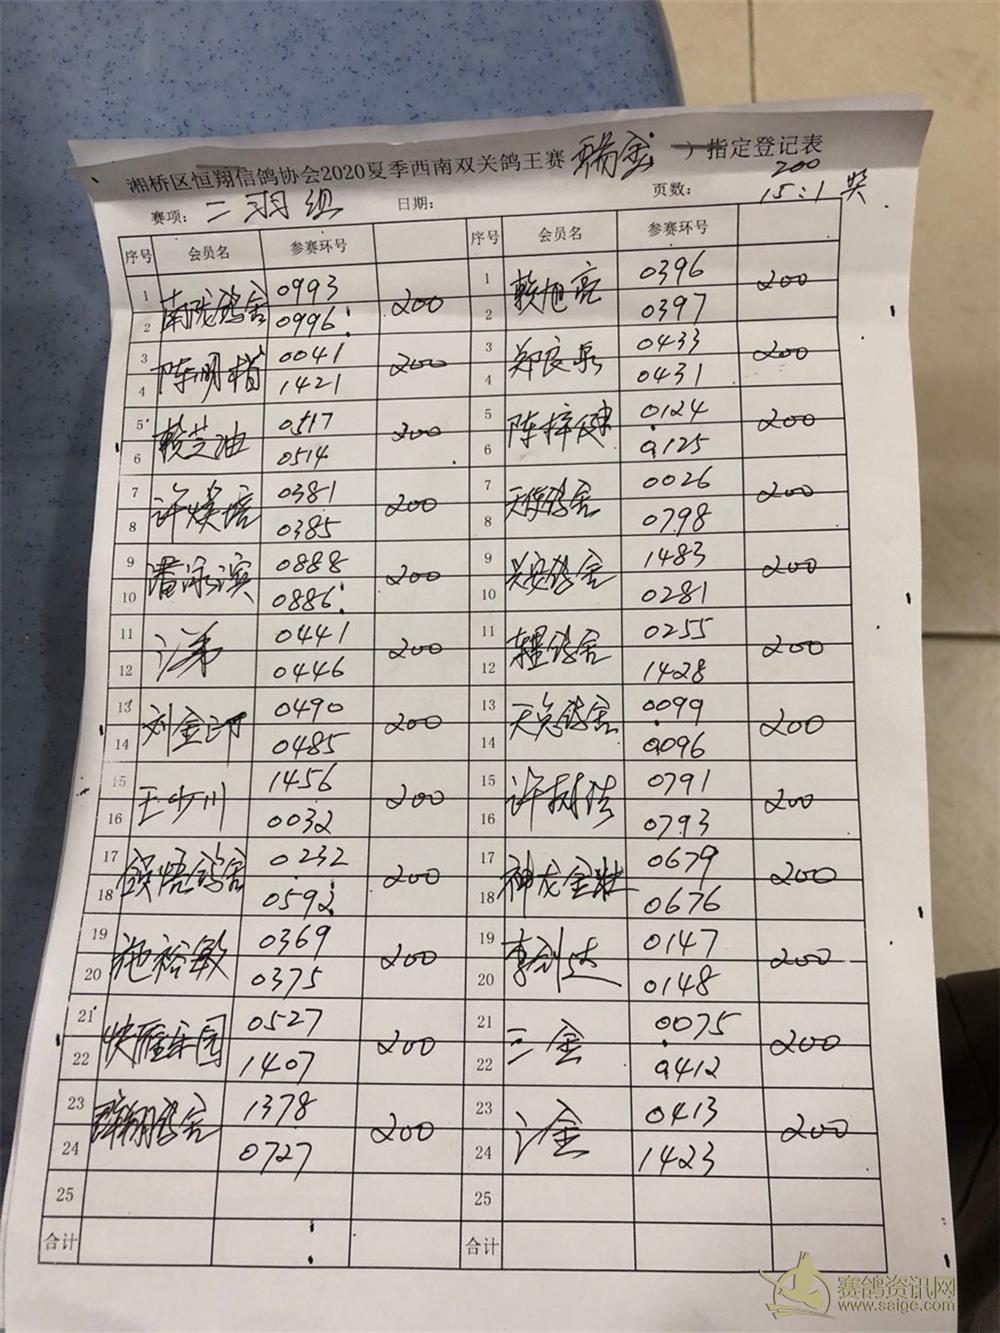 湘桥区恒翔信鸽协会2020夏季西南双关鸽王赛 瑞金 ）指定登记表
赛项：二羽组 日期： 页数： 200
15:1奖
序号 会员名 参赛环号 序号 会员名 参赛环号
1 南陇鸽舍 0993 200 1 赖旭亮 0396 200
2 0996 2 0397
3 陈明楷 0041 200 3 郑良泉 0433 200
4 1421 4 0431
5 赖芝油 0517 200 5 陈梓健 0124 200
6 0514 6 0125
7 许焕 0381 200 7 天保鸽舍 0026 200
8 0385 8 0798
9 潘泳滨 0888 200 9 兴安鸽舍 1483 200
10 0886 10 0281
11 0441 200 11 鸽舍 0255 200
12 0446 12 1428
13 刘金 0490 200 13 天 鸽舍 0099 200
14 0485 14 0096
15 王少川 1456 200 15 许 0791 200
16 0032 16 0793
17 悟鸽舍 0232 200 17 神龙金 0679 200
18 0592 18 0676
19 施裕敏 0369 200 19 李剑达 0147 200
20 0375 20 0148
21 乐园 0527 200 21 三金 0075 200
22 1407 22 0412
23 翔鸽舍 1378 200 23 金 0413 200
24 0727 24 1423
25 25
合计 合计
赛鸽资讯网
www.saige.com